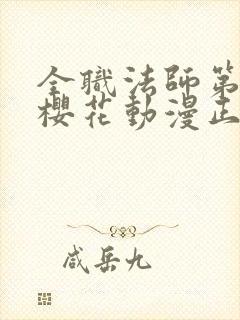 全職法師第
櫻花動漫正
咸岳九